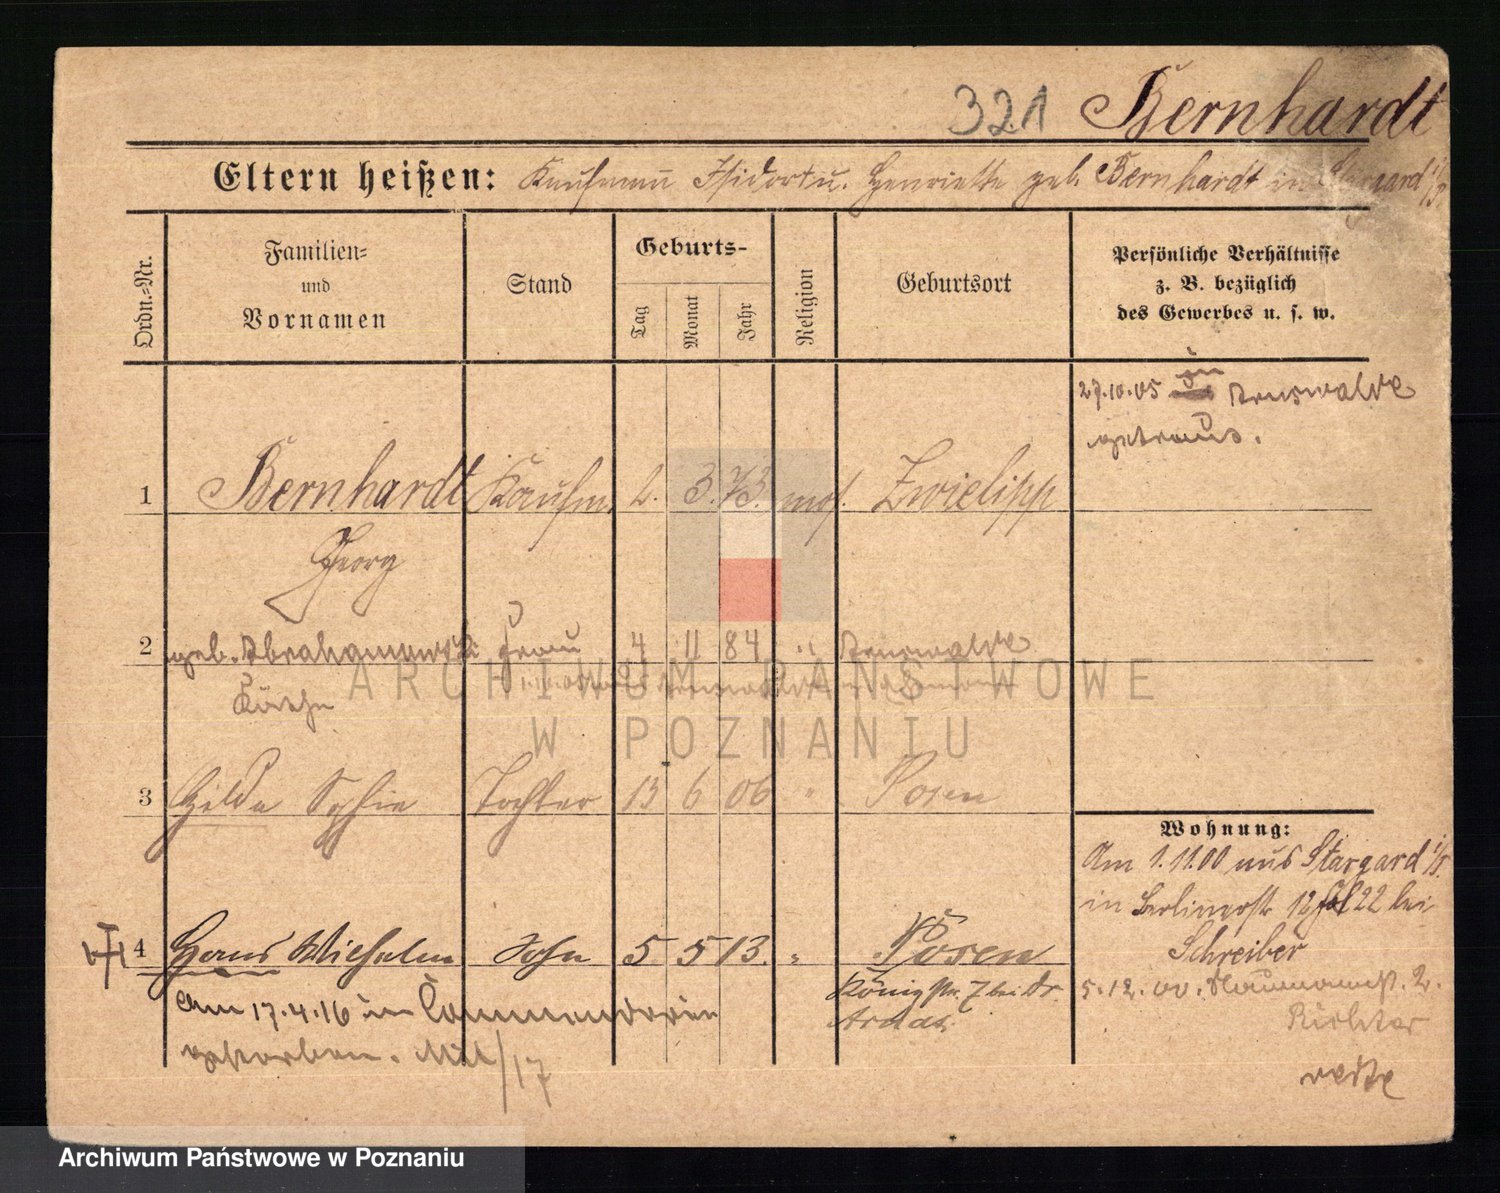 321 Bernhardt
Eltern heißen: Kaufmann Isidor u. Henriette geb. Bernhardt in Stargard i/P.
Ordn.-Nr.
Familien-
und
Vornamen
Stand
Geburts-
Tag
Monat
Jahr
Religion
Geburtsort
Persönliche Verhältnisse
z. B. bezüglich
des Gewerbes u. s. w.
27.10.05 in Arnswalde
getraut.
1 Bernhardt Kaufm. 2. 3. 73. mos. Zwielipp
Georg
2 geb. Frau 4 11 84 " Arnswalde
Käthe
ARCHIWUM PAŃSTWOWE
W POZNANIU
3 Hilda Sophie Tochter 13 6 06 " Posen
Wohnung:
Am 1.11.00 aus Stargard i/P.
in Berlinerstr 12 22 bei
Schreiber
4 Hans Wilhelm Sohn 5 5 13. " Posen
Königstr. 7 bei Dr.
5.12.00. Naumannst. 2.
Richter
am 17.4.16 in
gestorben. /17
Archiwum Państwowe w Poznaniu